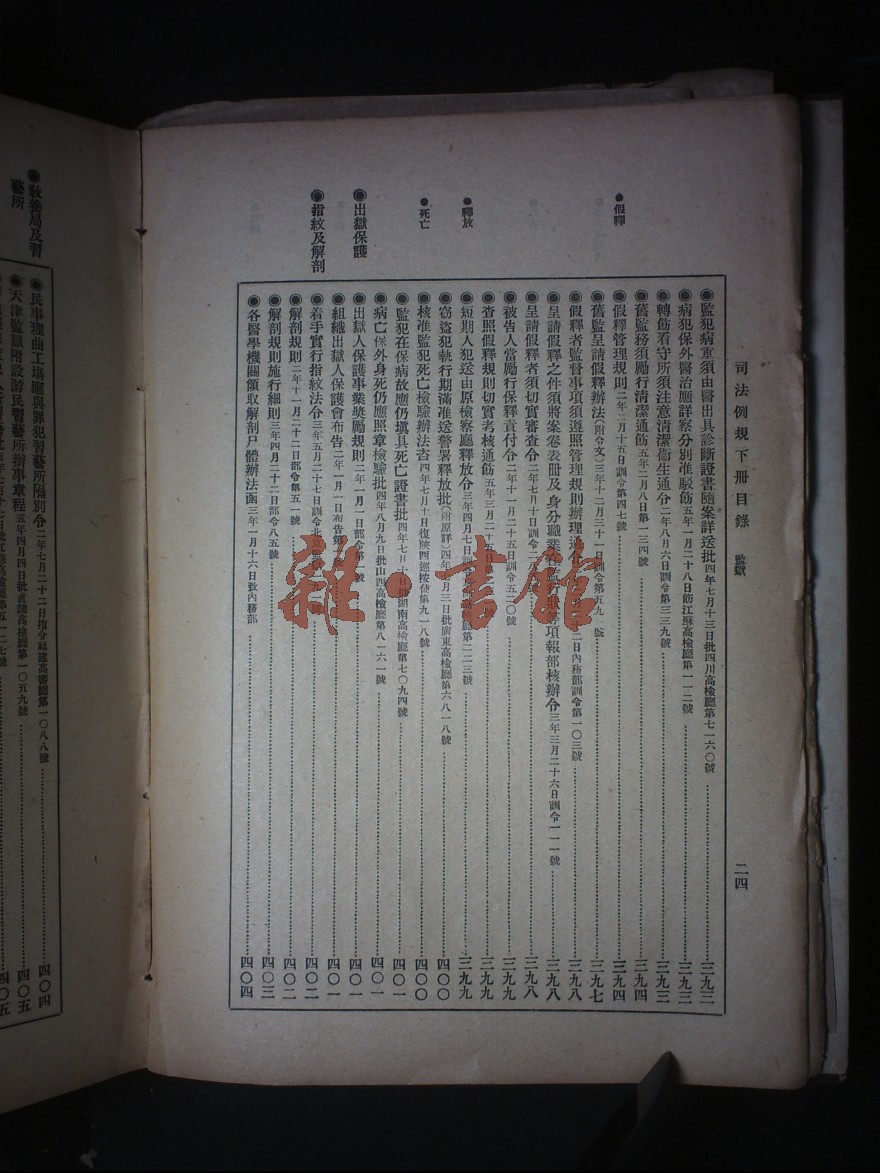 司法例規下冊目錄 監獄 二四
◉監犯病重須由醫出具診斷證書隨案詳送批四年七月十三日批四川高檢廳第七一六〇號 三九三
◉病犯保外醫治應詳察分別准駁飭五年一月二十八日飭江蘇高檢廳第一一二號 三九三
◉轉飭看守所須注意清潔衞生通令二年八月六日訓令第三三九號 三九三
◉舊監務須勵行清潔通飭五年二月八日第一三四號 三九四
●假釋
◉假釋管理規則二年二月十五日訓令第四七號 三九四
◉舊監呈請假釋辦法(附令文)三年十二月三十一日訓令第五九 號 三九七
◉假釋者監督事項須遵照管理規則辦理通令 二日內務部訓令第一〇三號 三九八
◉呈請假釋之件須將案卷表册及身分職業 行狀等項報部核辦令三年三月二十六日訓令一一一號 三九八
◉呈請假釋者須切實審查令二年七月十日訓令 號 三九八
◉被告人當勵行保釋責付令二年十一月二十五日訓令五二〇號 三九九
◉查照假釋規則切實考核通飭五年三月二十 三九九
●釋放
◉短期人犯送由原檢察廳釋放令三年四月七日訓令 高檢廳第二二三號 三九九
◉竊盜犯執行期滿准送警署釋放批(附原詳)四年 月三日批廣東高檢廳第六八一八號 四〇〇
●死亡
◉核准監犯死亡檢驗辦法咨四年七月十日復陝西巡按使第九一八號 四〇〇
◉監犯在保病故應仍塡具死亡證書批四年七月十日批湖南高檢廳第七〇九四號 四〇一
◉病亡保外身死仍應照章檢驗批四年八月九日批山西高檢廳第八一六一號 四〇一
◉出獄保護
◉出獄人保護事業奬勵規則二年一月一日部令第 號 四〇一
◉組織出獄人保護會布告二年一月一日布告第 四〇一
◉指紋及解剖
◉着手實行指紋法令三年五月二十七日訓令北京 四〇二
◉解剖規則二年十一月二十二日部令第五一號 四〇二
◉解剖規則施行細則三年四月二十二日部令第八五號 四〇三
◉各醫學機關領取解剖尸體辦法函三年一月十六日致內務部 四〇四
◉敎養局及習藝所
◉民事理曲工塲應與罪犯習藝所隔別令二年七月二十二日指令福建高審廳第一〇八八號 四〇四
◉天津監獄附設游民習藝所辦事章程五年四月四日批直隸高檢廳第一〇五九號 四〇五
雜·書館